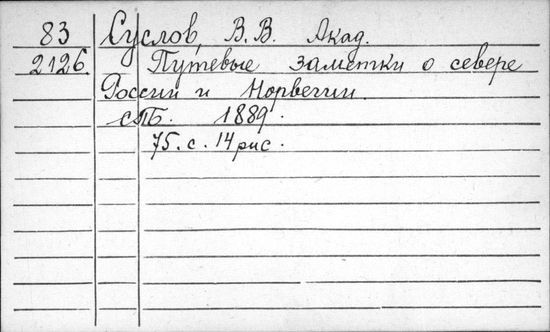 83 Суслов В. В. Акад.
2126. Путевые заметки о севере
России и Норвегии.
СПБ. 1889.
75. с. 14 рис.